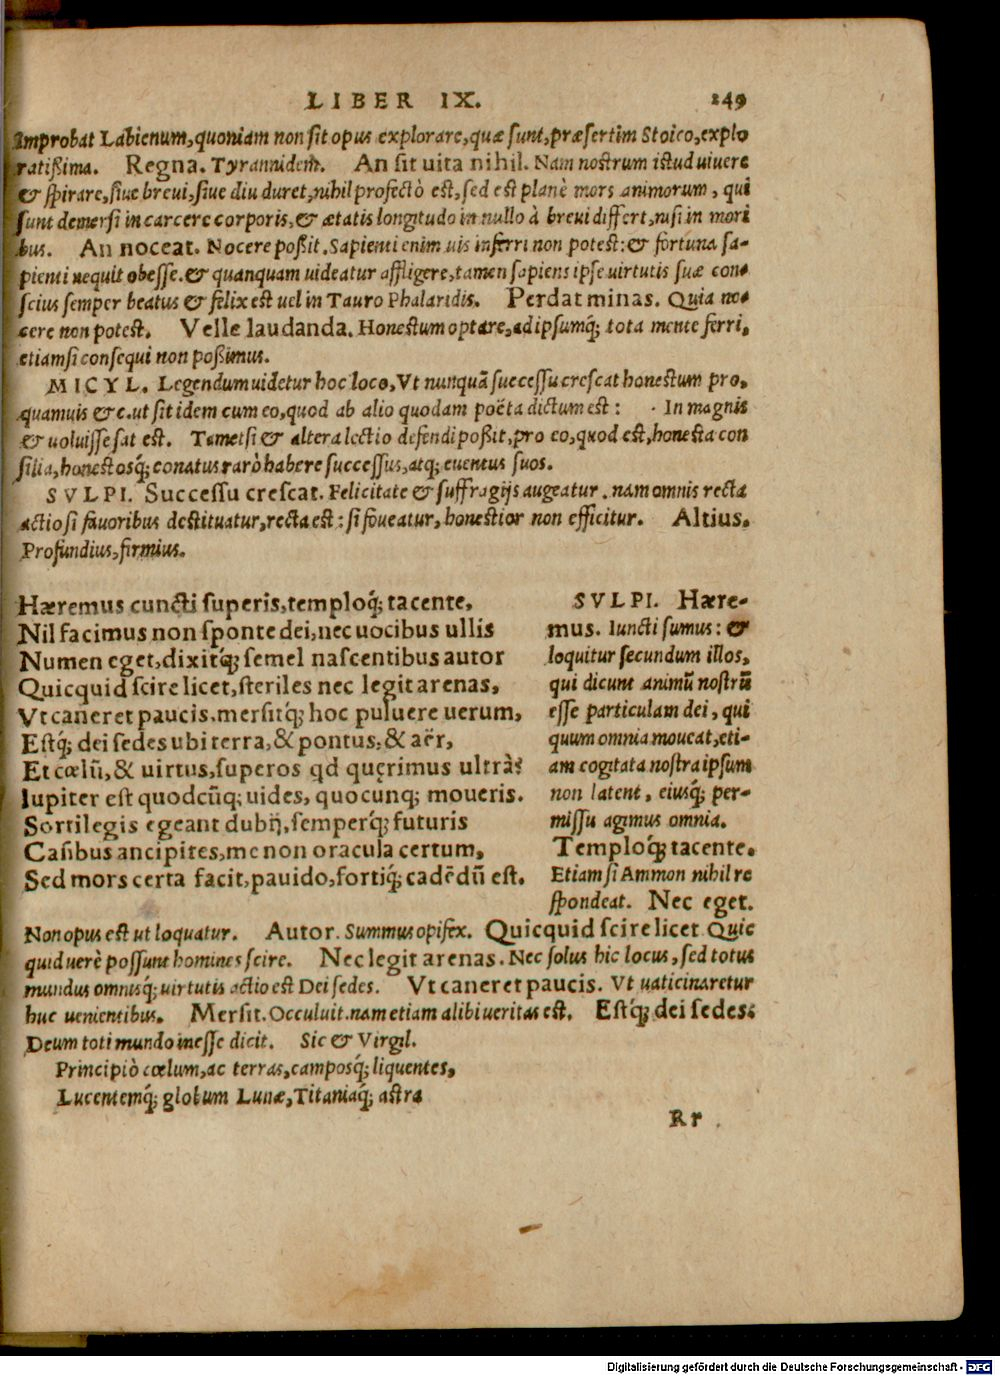 LIBER IX. 249
Improbat Labienum, quoniam non sit opus explorare, quæ sunt, præsertim Stoico, explo
ratißima. Regna. Tyrannidem. An sit uita nihil. Nam nostrum istud uiuere
& spirare, siue breui, siue diu duret, nihil profectò est, sed est planè mors animorum, qui
sunt demersi in carcere corporis, & ætatis longitudo in nullo à breui differt, nisi in mori
bus. An noceat. Nocere poßit. Sapienti enim uis inferri non potest: & fortuna sa-
pienti nequit obesse. & quanquam uideatur affligere, tamen sapiens ipse uirtutis suæ con-
scius semper beatus & felix est uel in Tauro Phalaridis. Perdat minas. Quia no-
cere non potest. Velle laudanda. Honestum optare, adipsumq́; tota mente ferri,
etiamsi consequi non poßimus.
MICYL. Legendum uidetur hoc loco, Vt nunquã successu crescat honestum pro,
quamuis &c. ut sit idem cum eo, quod ab alio quodam poëta dictum est: In magnis
& uoluisse sat est. Tametsi & altera lectio defendi poßit, pro eo, quod est, honesta con
silia, honestosq́; conatus rarò habere successus, atq; euentus suos.
SVLPI. Successu crescat. Felicitate & suffragijs augeatur. nam omnis recta
actio si fauoribus destituatur, recta est: si foueatur, honestior non efficitur. Altius.
Profundius, firmius.
Hæremus cuncti superis, temploq́; tacente,
Nil facimus non sponte dei, nec uocibus ullis
Numen eget, dixitq́; semel nascentibus autor
Quicquid scire licet, steriles nec legit arenas,
Vt caneret paucis, mersitq́; hoc puluere uerum,
Estq́; dei sedes ubi terra, & pontus, & aër,
Et cœlũ, & uirtus, superos qd quęrimus ultrà?
Iupiter est quodcũq; uides, quocunq; moueris.
Sortilegis egeant dubij, semperq́; futuris
Casibus ancipites, me non oracula certum,
Sed mors certa facit, pauido, fortiq́; cadẽdũ est.
SVLPI. Hære-
mus. Iuncti sumus: &
loquitur secundum illos,
qui dicunt animũ nostrũ
esse particulam dei, qui
quum omnia moueat, eti-
am cogitata nostra ipsum
non latent, eiusq́; per-
missu agimus omnia.
Temploq́; tacente.
Etiam si Ammon nihil re
spondeat. Nec eget.
Non opus est ut loquatur. Autor. Summus opifex. Quicquid scire licet. Quic
quid uerè possunt homines scire. Nec legit arenas. Nec solus hic locus, sed totus
mundus omnisq́; uirtutis actio est Dei sedes. Vt caneret paucis. Vt uaticinaretur
huc uenientibus. Mersit. Occuluit. nam etiam alibi ueritas est. Estq́; dei sedes:
Deum toti mundo inesse dicit. Sic & Virgil.
Principiò cœlum, ac terras, camposq́; liquentes,
Lucentemq́; globum Lunæ, Titaniaq́; astra
Rr
Digitalisierung gefördert durch die Deutsche Forschungsgemeinschaft - DFG